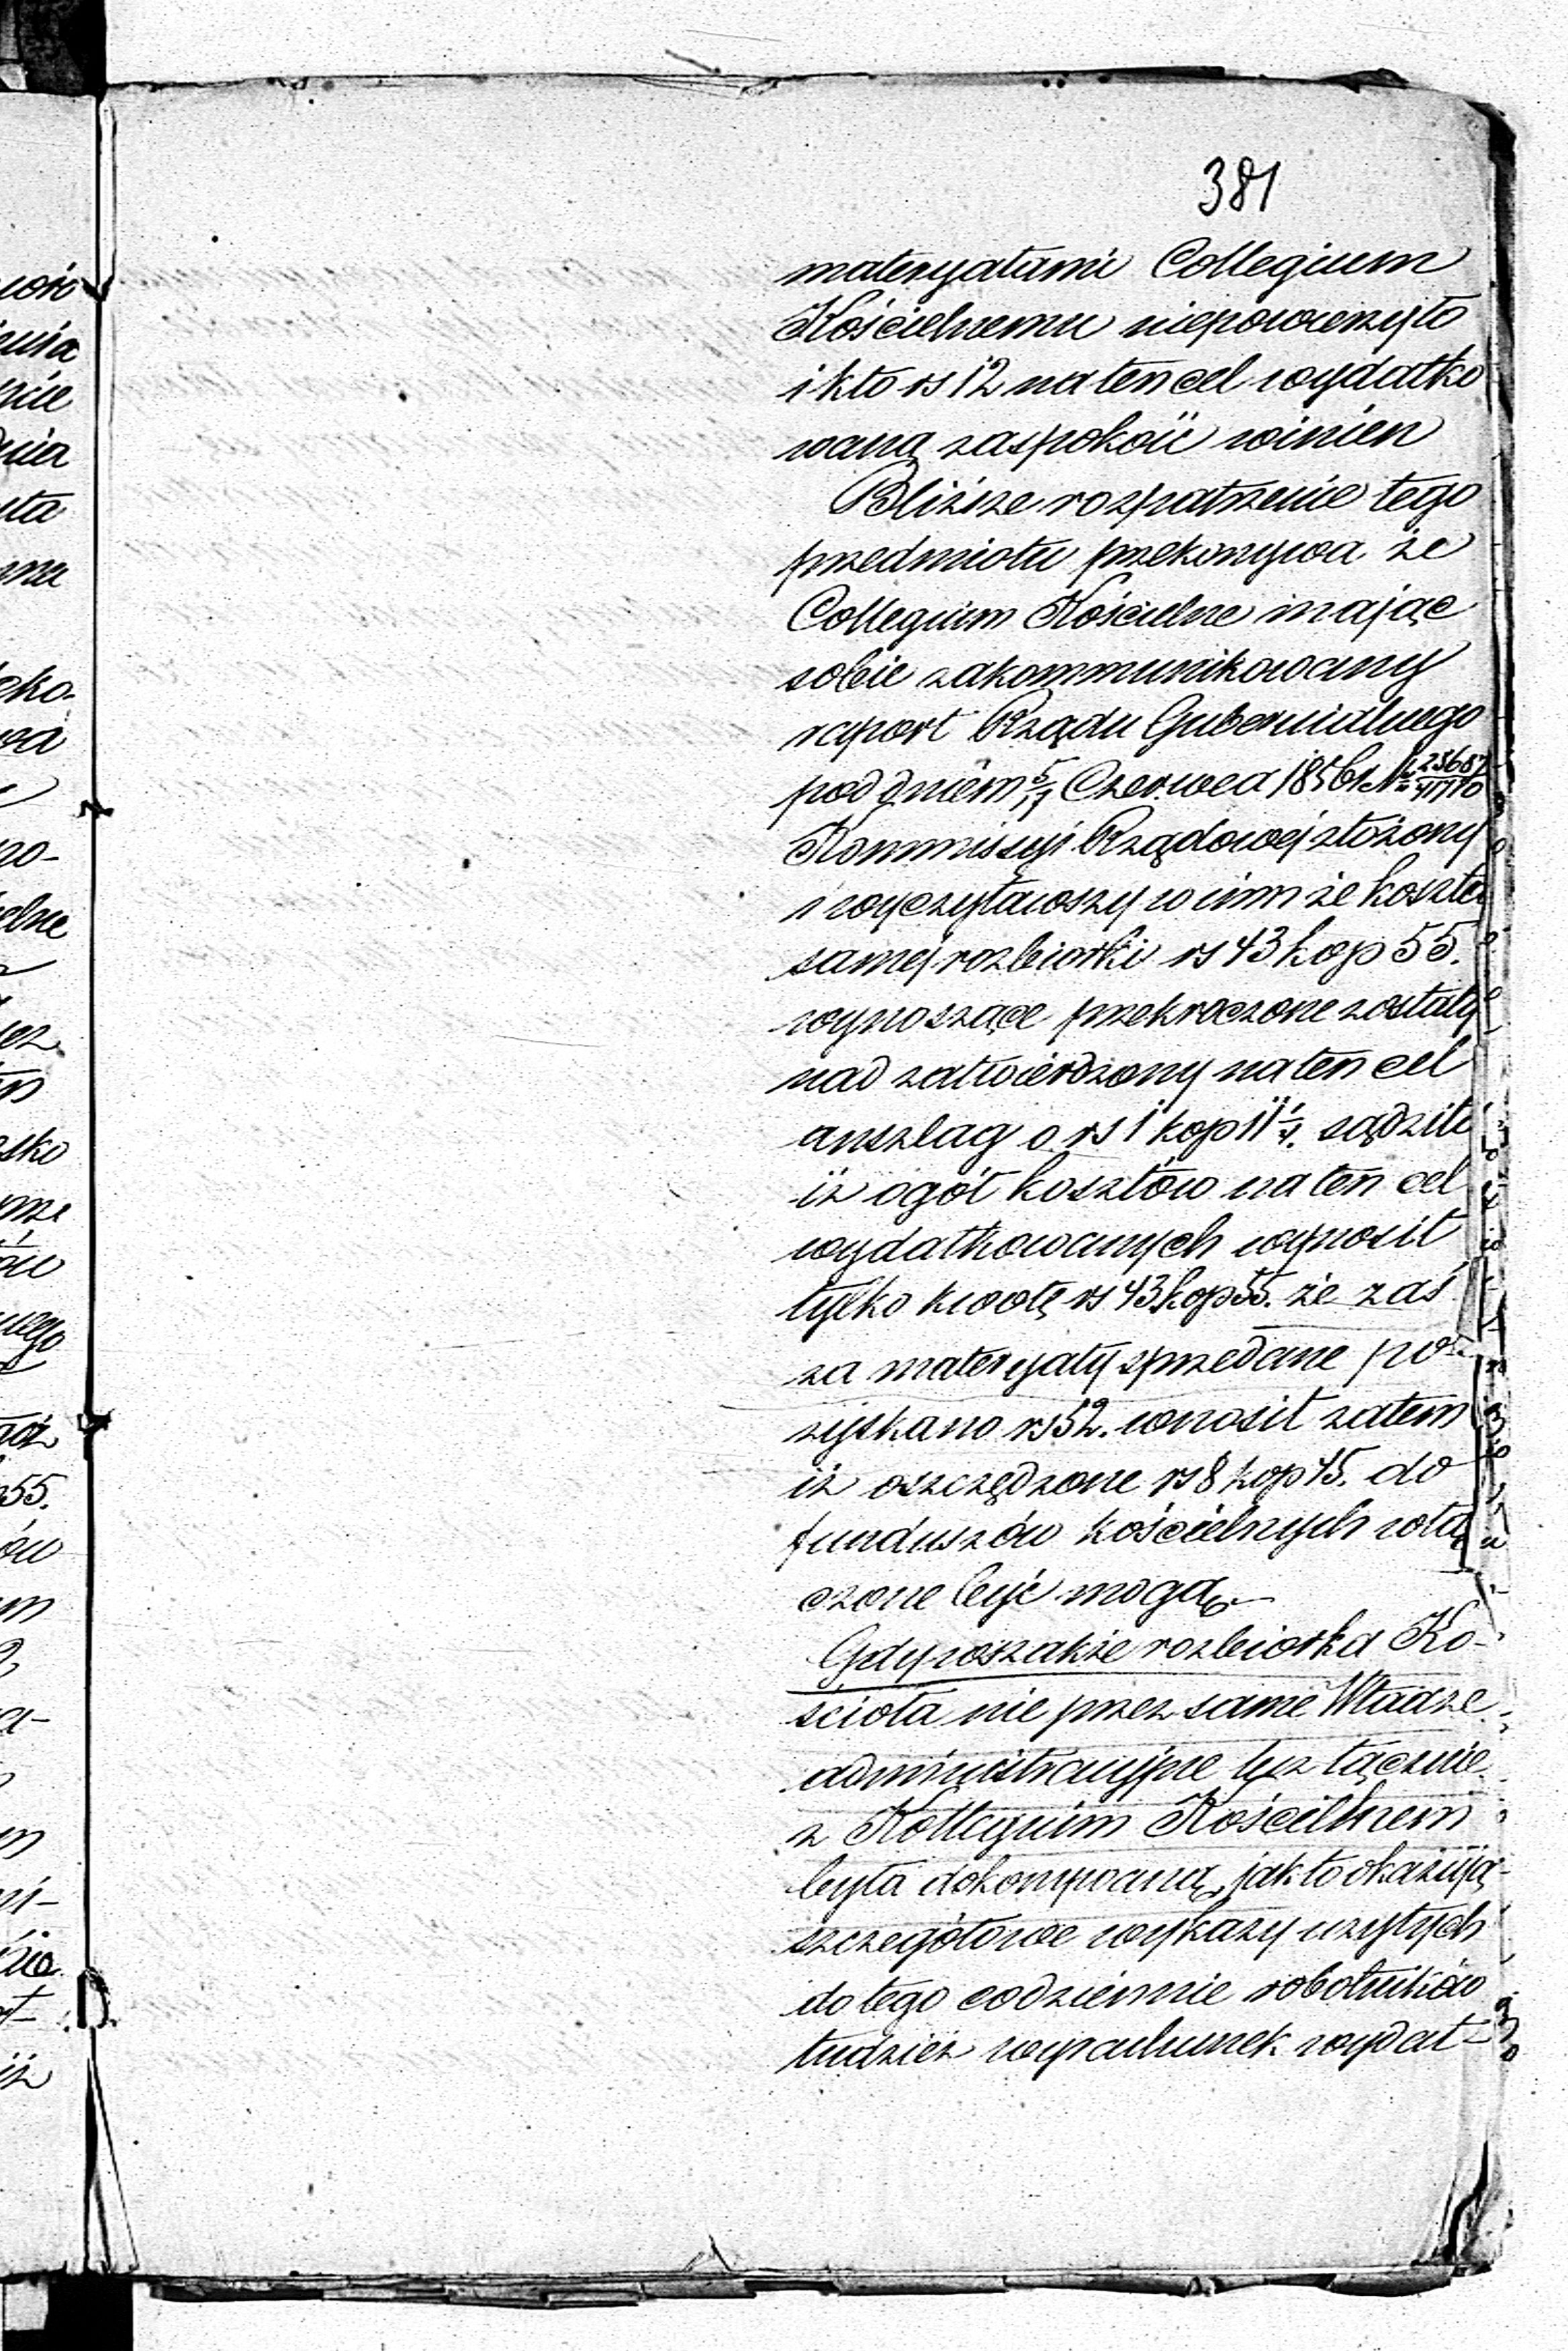 381
materyałami Collegium
Kościelnemu niepowierzyło
i kto rs 12 na ten cel wydatko
waną zaspokoić winien
Bliższe rozpatrzenie tego
przedmiotu przekonywa że
Collegium Kościelne mając
sobie zakommunikowany
raport Rządu Gubernialnego
pod dniem 5/17 Czerwca 1856 r. N
Kommissyi Rządowej złożony
i wyczytawszy w nim że koszta
samej rozbiorki rs 43 kop 55.
wynoszące przekroczone zostały
nad zatwierdzony na ten cel
anszlag o rs 1 kop 11 sądziło
iż ogół kosztów na ten cel
wydatkowanych wynosił
tylko kwotę rs 43 kop 55. że zaś
za materyały sprzedane po-
zyskano rs 52. wnosił zatem
iż oszczędzone rs 8 kop 45. do
funduszów kościelnych włą
czone być mogą
Gdy wszakże rozbiorka Ko-
ścioła nie przez same Władze
administracyjne lecz łącznie
z Kollegium Kościelnem
była dokonywaną, jak to okazują
szczegółowe wykazy użytych
do tego codziennie robotników
tudzież wyrachunek wydat-